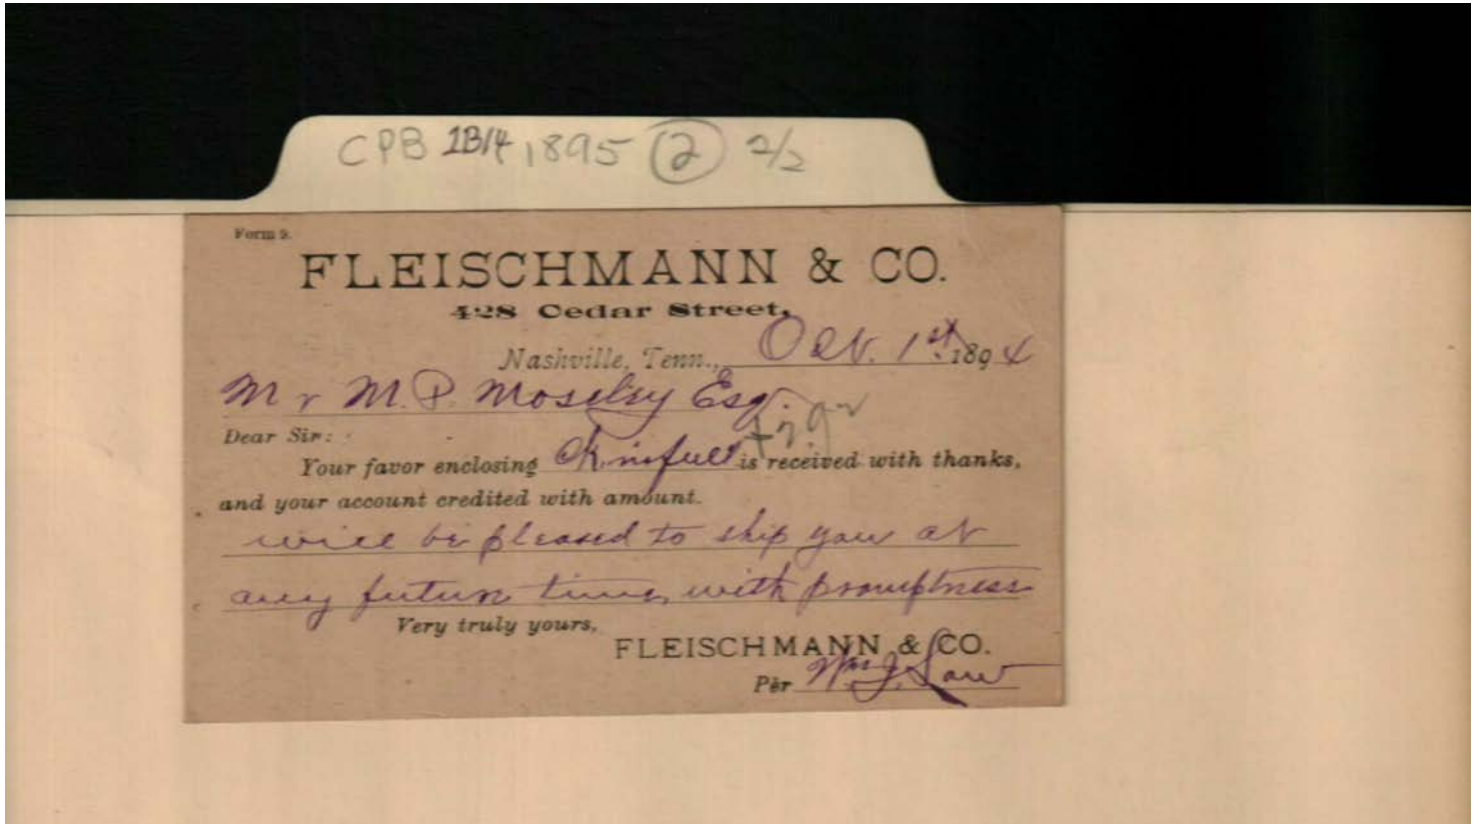 CPB 1B/4 1895 (2) 2/2
Form 9.
FLEISCHMANN & CO.
428 Cedar Street,
Nashville, Tenn., Oct. 1st 1894
Mr M. P. Moseley Esq.
Dear Sir:
Your favor enclosing Ck. in full is received with thanks,
and your account credited with amount.
will be pleased to ship you at
any future time, with promptness
Very truly yours,
FLEISCHMANN & CO.
Per Wm. J. Law